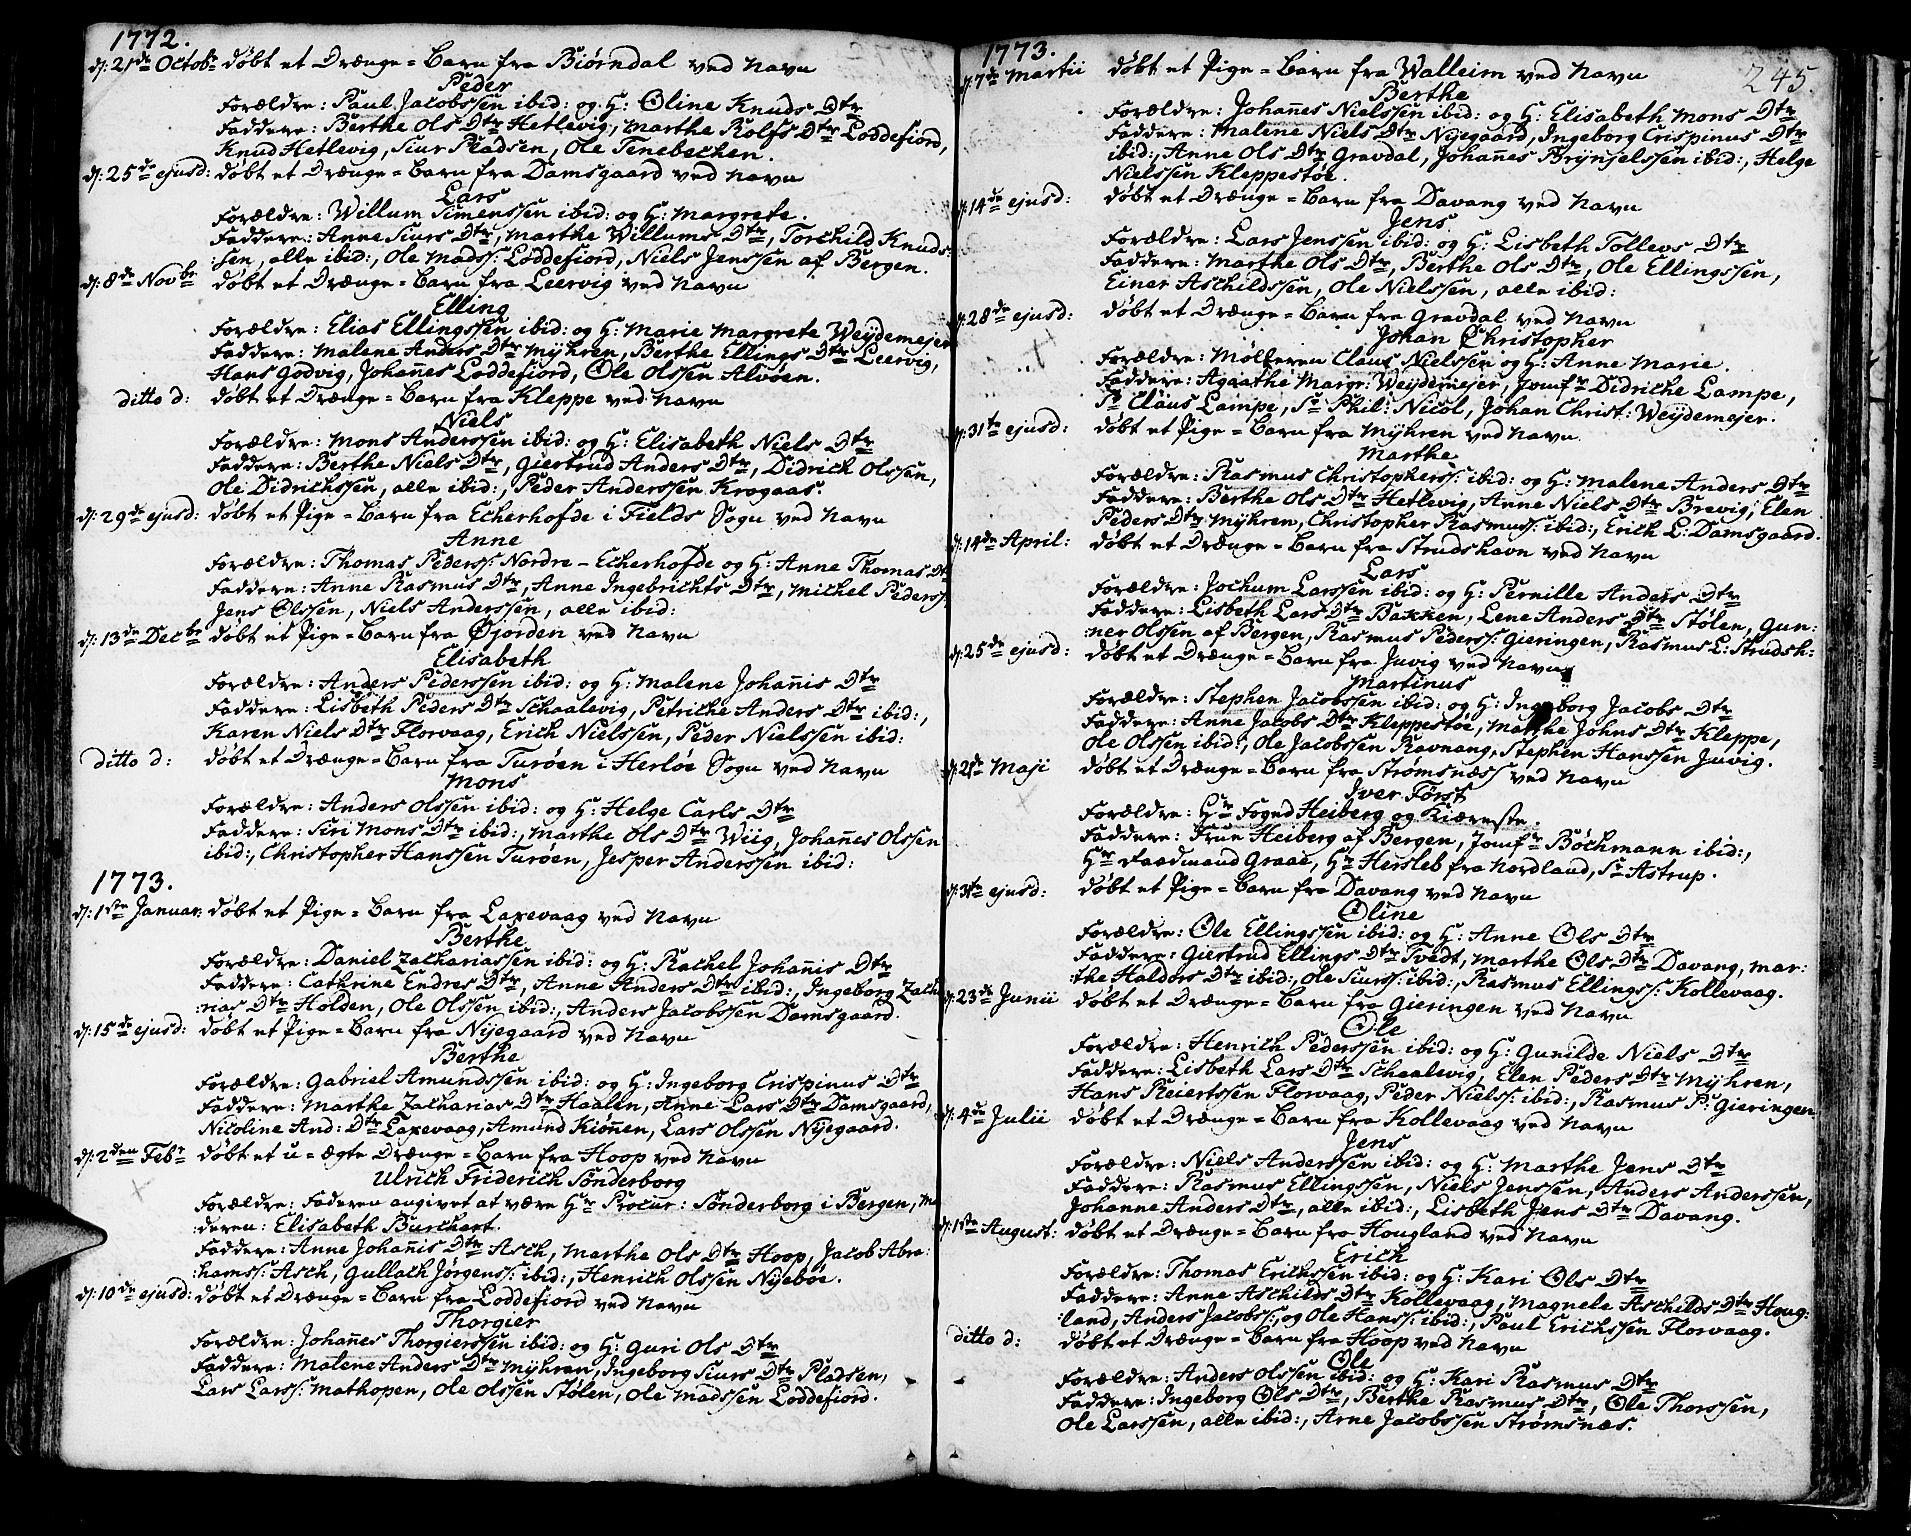 1772.
d: 21de Octobr døbt et Drænge-Barn fra Biørndal ved Navn
Peder
Forældre: Paul Jacobssen ibid: og H: Oline Knuds Dtr
Faddere: Berthe Ols Dtr Hetlevig, Marthe Rolfs Dtr Loddefiord,
Knud Hetlevig, Siur Pladsen, Ole Tenebechen.
d: 25de ejusd: døbt et Drænge-Barn fra Damsgaard ved Navn
Lars
Forældre: Willum Simenssen ibid: og H: Margrete.
Faddere: Anne Siurs Dtr, Marthe Willums Dtr, Torchild Knuds-
:sen, alle ibid:, Ole Madss: Loddefiord, Niels Jenssen af Bergen.
d: 8de Novbr døbt et Drænge-Barn fra Leervig ved Navn
Elling
Forældre: Elias Ellingssen ibid: og H: Marie Margrete Weydemejer
Faddere: Malene Anders Dtr Myhren, Berthe Ellings Dtr Leervig,
Hans Godvig, Johañes Loddefiord, Ole Olssen Alvøen.
ditto d: døbt et Drænge-Barn fra Kleppe ved Navn
Niels
Forældre: Mons Anderssen ibid: og H: Elisabeth Niels Dtr
Faddere: Berthe Niels Dtr, Giertrud Anders Dtr, Didrich Olssen,
Ole Didrichssen, alle ibid:, Peder Anderssen Krogaas.
d: 29de ejusd: døbt et Pige-Barn fra Echerhofde i Fields Sogn ved Navn
Anne
Forældre: Thomas Pederss: Nordre-Echerhofde og H: Anne Thomas Dtr
Faddere: Anne Rasmus Dtr, Anne Ingebrichts Dtr, Michel Pederss:
Jens Olssen, Niels Anderssen, alle ibid:
d: 13de Decbr døbt et Pige-Barn fra Øjorden ved Navn
Elisabeth
Forældre: Anders Pederssen ibid: og H: Malene Johañis Dtr
Faddere: Lisbeth Peders Dtr Schaalevig, Petriche Anders Dtr ibid:,
Karen Niels Dtr Florvaag, Erich Nielssen, Peder Nielssen ibid:
ditto d: døbt et Drænge-Barn fra Turøen i Herløe Sogn ved Navn
Mons
Forældre: Anders Olssen ibid: og H: Helge Carls Dtr
Faddere: Siri Mons Dtr ibid:, Marthe Ols Dtr Wiig, Johañes Olssen
ibid:, Christopher Hanssen Turøen, Jesper Anderssen ibid:
1773.
d: 1ste Januar: døbt et Pige-Barn fra Laxevaag ved Navn
Berthe
Forældre: Daniel Zachariassen ibid: og H: Rachel Johañis Dtr
Faddere: Cathrine Endres Dtr, Anne Anders Dtr ibid:, Ingeborg Zacha
:rias Dtr Holden, Ole Olssen ibid:, Anders Jacobssen Damsgaard.
d: 15de ejusd: døbt et Pige-Barn fra Nyegaard ved Navn
Berthe
Forældre: Gabriel Amundssen ibid: og H: Ingeborg Crispinus Dtr
Faddere: Marthe Zacharias Dtr Haalen, Anne Lars Dtr Damsgaard,
Nicoline And: Dtr Laxevaag, Amund Kiøñen, Lars Olssen Nyegaard.
d: 2den Febr døbt et u-ægte Drænge-Barn fra Hoop ved Navn
Ulrich Friderich Sønderborg
Forældre: Faderen angivet at være Hr Procur: Sønderborg i Bergen, Mo
deren: Elisabeth Burchart.
Faddere: Anne Johañis Dtr Asch, Marthe Ols Dtr Hoop, Jacob Abra:
:hamss: Asch, Gullach Jørgenss: ibid:, Henrich Olssen Nyebøe.
d: 10de ejusd: døbt et Drænge-Barn fra Loddefiord ved Navn
Thorgier
Forældre: Johañes Thorgierssen ibid: og H: Guri Ols Dtr
Faddere: Malene Anders Dtr Myhren, Ingeborg Siurs Dtr Pladsen,
Lars Larss: Mathopen, Ole Olssen Stølen, Ole Madssen Loddefiord.
1773.
245.
d: 7de Martii døbt et Pige-Barn fra Walleim ved Navn
Berthe
Forældre: Johañes Nielssen ibid: og H: Elisabeth Mons Dtr
Faddere: Malene Niels Dtr Nyegaard, Ingeborg Crispinus Dtr
ibid:, Anne Ols Dtr Gravdal, Johañes Brynjelssen ibid:, Helge
Nielssen Kleppestøe.
d: 14de ejusd: døbt et Drænge-Barn fra Davang ved Navn
Jens
Forældre: Lars Jenssen ibid: og H: Lisbeth Tollevs Dtr
Faddere: Marthe Ols Dtr, Berthe Ols Dtr, Ole Ellingssen,
Einer Aschildssen, Ole Nielssen, alle ibid:
d: 28de ejusd: døbt et Drænge-Barn fra Gravdal ved Navn
Johan Christopher
Forældre: Mølleren Claus Nielssen og H: Anne Marie.
Faddere: Agaathe Margr: Weydemejer, Jomfr Didriche Lampe,
Sr Claus Lampe, Sr Phil: Nicol, Johan Christ: Weydemejer.
d: 31te ejusd: døbt et Pige-Barn fra Myhren ved Navn
Marthe
Forældre: Rasmus Christopherss: ibid: og H: Malene Anders Dtr
Faddere: Berthe Ols Dtr Hetlevig, Anne Niels Dtr Brevig, Elen
Peders Dtr Myhren, Christopher Rasmuss: ibid:, Erich L: Damsgaard.
d: 14de April: døbt et Drænge-Barn fra Strudshavn ved Navn
Lars
Forældre: Jochum Larssen ibid: og H: Pernille Anders Dtr
Faddere: Lisbeth Lars Dtr Bakken, Lene Anders Dtr Stølen, Gun:
:ner Olssen af Bergen, Rasmus Pederss: Gieringen, Rasmus L: Strudsh:
d: 25de ejusd: døbt et Drænge-Barn fra Juvig ved Navn
Martinus
Forældre: Stephen Jacobssen ibid: og H: Ingeborg Jacobs Dtr
Faddere: Anne Jacobs Dtr Kleppestøe, Marthe Johns Dtr Kleppe,
Ole Olssen ibid:, Ole Jacobssen Ravnang, Stephen Hanssen Juvig.
d: 2de Maji døbt et Drænge-Barn fra Strømsnæss ved Navn
Iver Først
Forældre: Hr Foged Heiberg og Kiæreste.
Faddere: Frue Heiberg af Bergen, Jomfr Bøchmann ibid:,
Hr Faadmand Graae, Hr Hersleb fra Nordland, Sr Astrup.
d: 31te ejusd: døbt et Pige-Barn fra Davang ved Navn
Oline
Forældre: Ole Ellingssen ibid: og H: Anne Ols Dtr
Faddere: Giertrud Ellings Dtr Tvedt, Marthe Ols Dtr Davang, Mar:
:the Haldors Dtr ibid:, Ole Siurss: ibid:, Rasmus Ellingss: Kollevaag.
d: 23de Junii døbt et Drænge-Barn fra Gieringen ved Navn
Ole
Forældre: Henrich Pederssen ibid: og H: Gunilde Niels Dtr
Faddere: Lisbeth Lars Dtr Schaalevig, Elen Peders Dtr Myhren,
Hans Reiertssen Florvaag, Peder Nielss: ibid:, Rasmus P: Gieringen
d: 4de Julii døbt et Drænge-Barn fra Kollevaag ved Navn
Jens
Forældre: Niels Anderssen ibid: og H: Marthe Jens Dtr
Faddere: Rasmus Ellingssen, Niels Jenssen, Anders Anderssen,
Johanne Anders Dtr, alle ibid:, Lisbeth Jens Dtr Davang.
d: 1ste August: døbt et Drænge-Barn fra Hougland ved Navn
Erich
Forældre: Thomas Erichssen ibid: og H: Kari Ols Dtr
Faddere: Anne Aschilds Dtr Kollevaag, Magnele Aschilds Dtr Houg:
:land, Anders Jacobss:, og Ole Hanss: ibid:, Paul Erichssen Florvaag.
ditto d: døbt et Drænge-Barn fra Hoop ved Navn
Ole
Forældre: Anders Olssen ibid: og H: Kari Rasmus Dtr
Faddere: Ingeborg Ols Dtr, Berthe Rasmus Dtr, Ole Thorssen,
Ole Larssen, alle ibid:, Arne Jacobssen Strømsnæs.